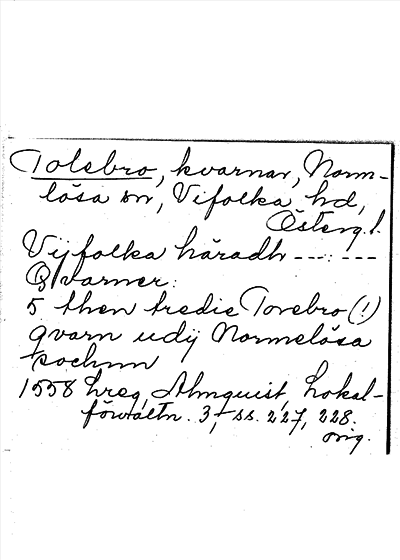 Tolebro, kvarnar, Norm-
lösa sn, Vifolka hd,
Österg. l.
Vijfolka häradh --- : ---
Qvarner:
5 then tredie Torebro (!)
qvarn udij Normelösa
sochnn
1558 hreg, Almquist, Lokal-
förvaltn. 3, ss. 227, 228.
orig.